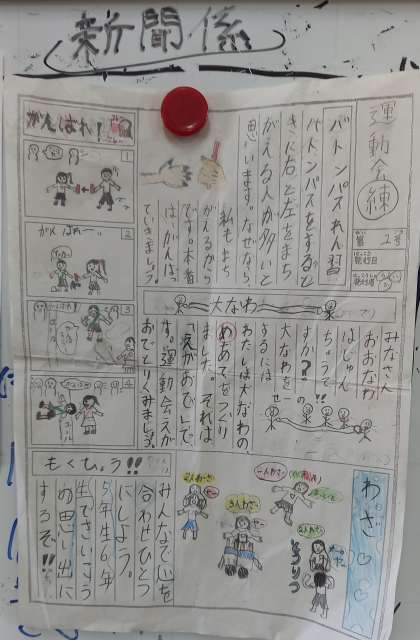 新聞係
運動会練
第2号
バトンパスれん習
バトンパスをすると
きに右と左をまち
がえる人が多いと
思います。なぜなら
私もまち
がえるから
です。本番
は、がんばっ
ていきましょう。
がんばれ!
1
2
がんばれー
3
4
大なわ
みなさん
おおなわ
はじゅん
ちょうで
すか?!!
大なわを
するには
わたしは大なわの
めあてをつくり
ました。それは
「えがおで」で
す。運動会えが
おでとりくみましょう
わざ
一人わざ
二人わざ
三人わざ
もくひょう!!
みんなで心を
合わせひとつ
にしよう。
5年生6年
生でさいこう
の思い出に
するぞ!!